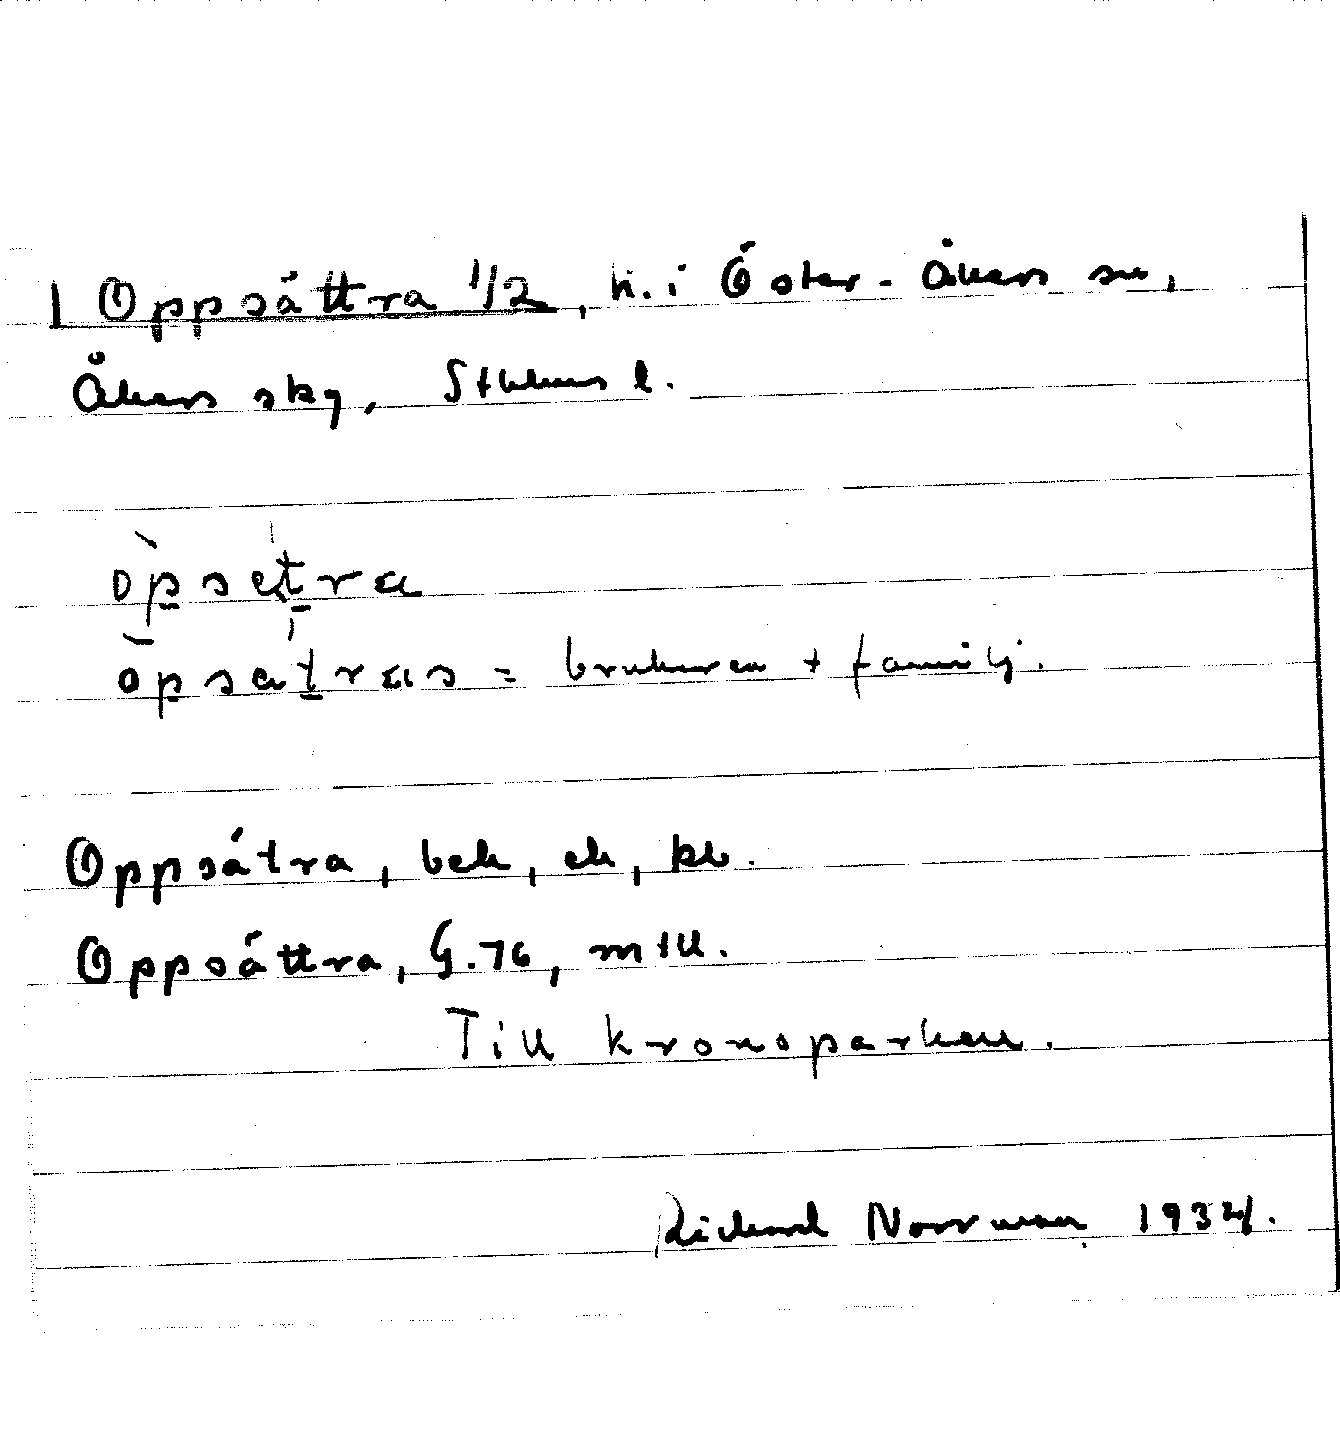 1 Oppsättra 1/2, h. i Öster-Åkers sn,
Åkers skg, Sthlms l.
òpsetra
òpsatras = brukaren + familj.
Oppsätra, bek, ek, kb.
Oppsättra, G.76, mtll.
Till kronoparken.
Richard Norrman 1934.